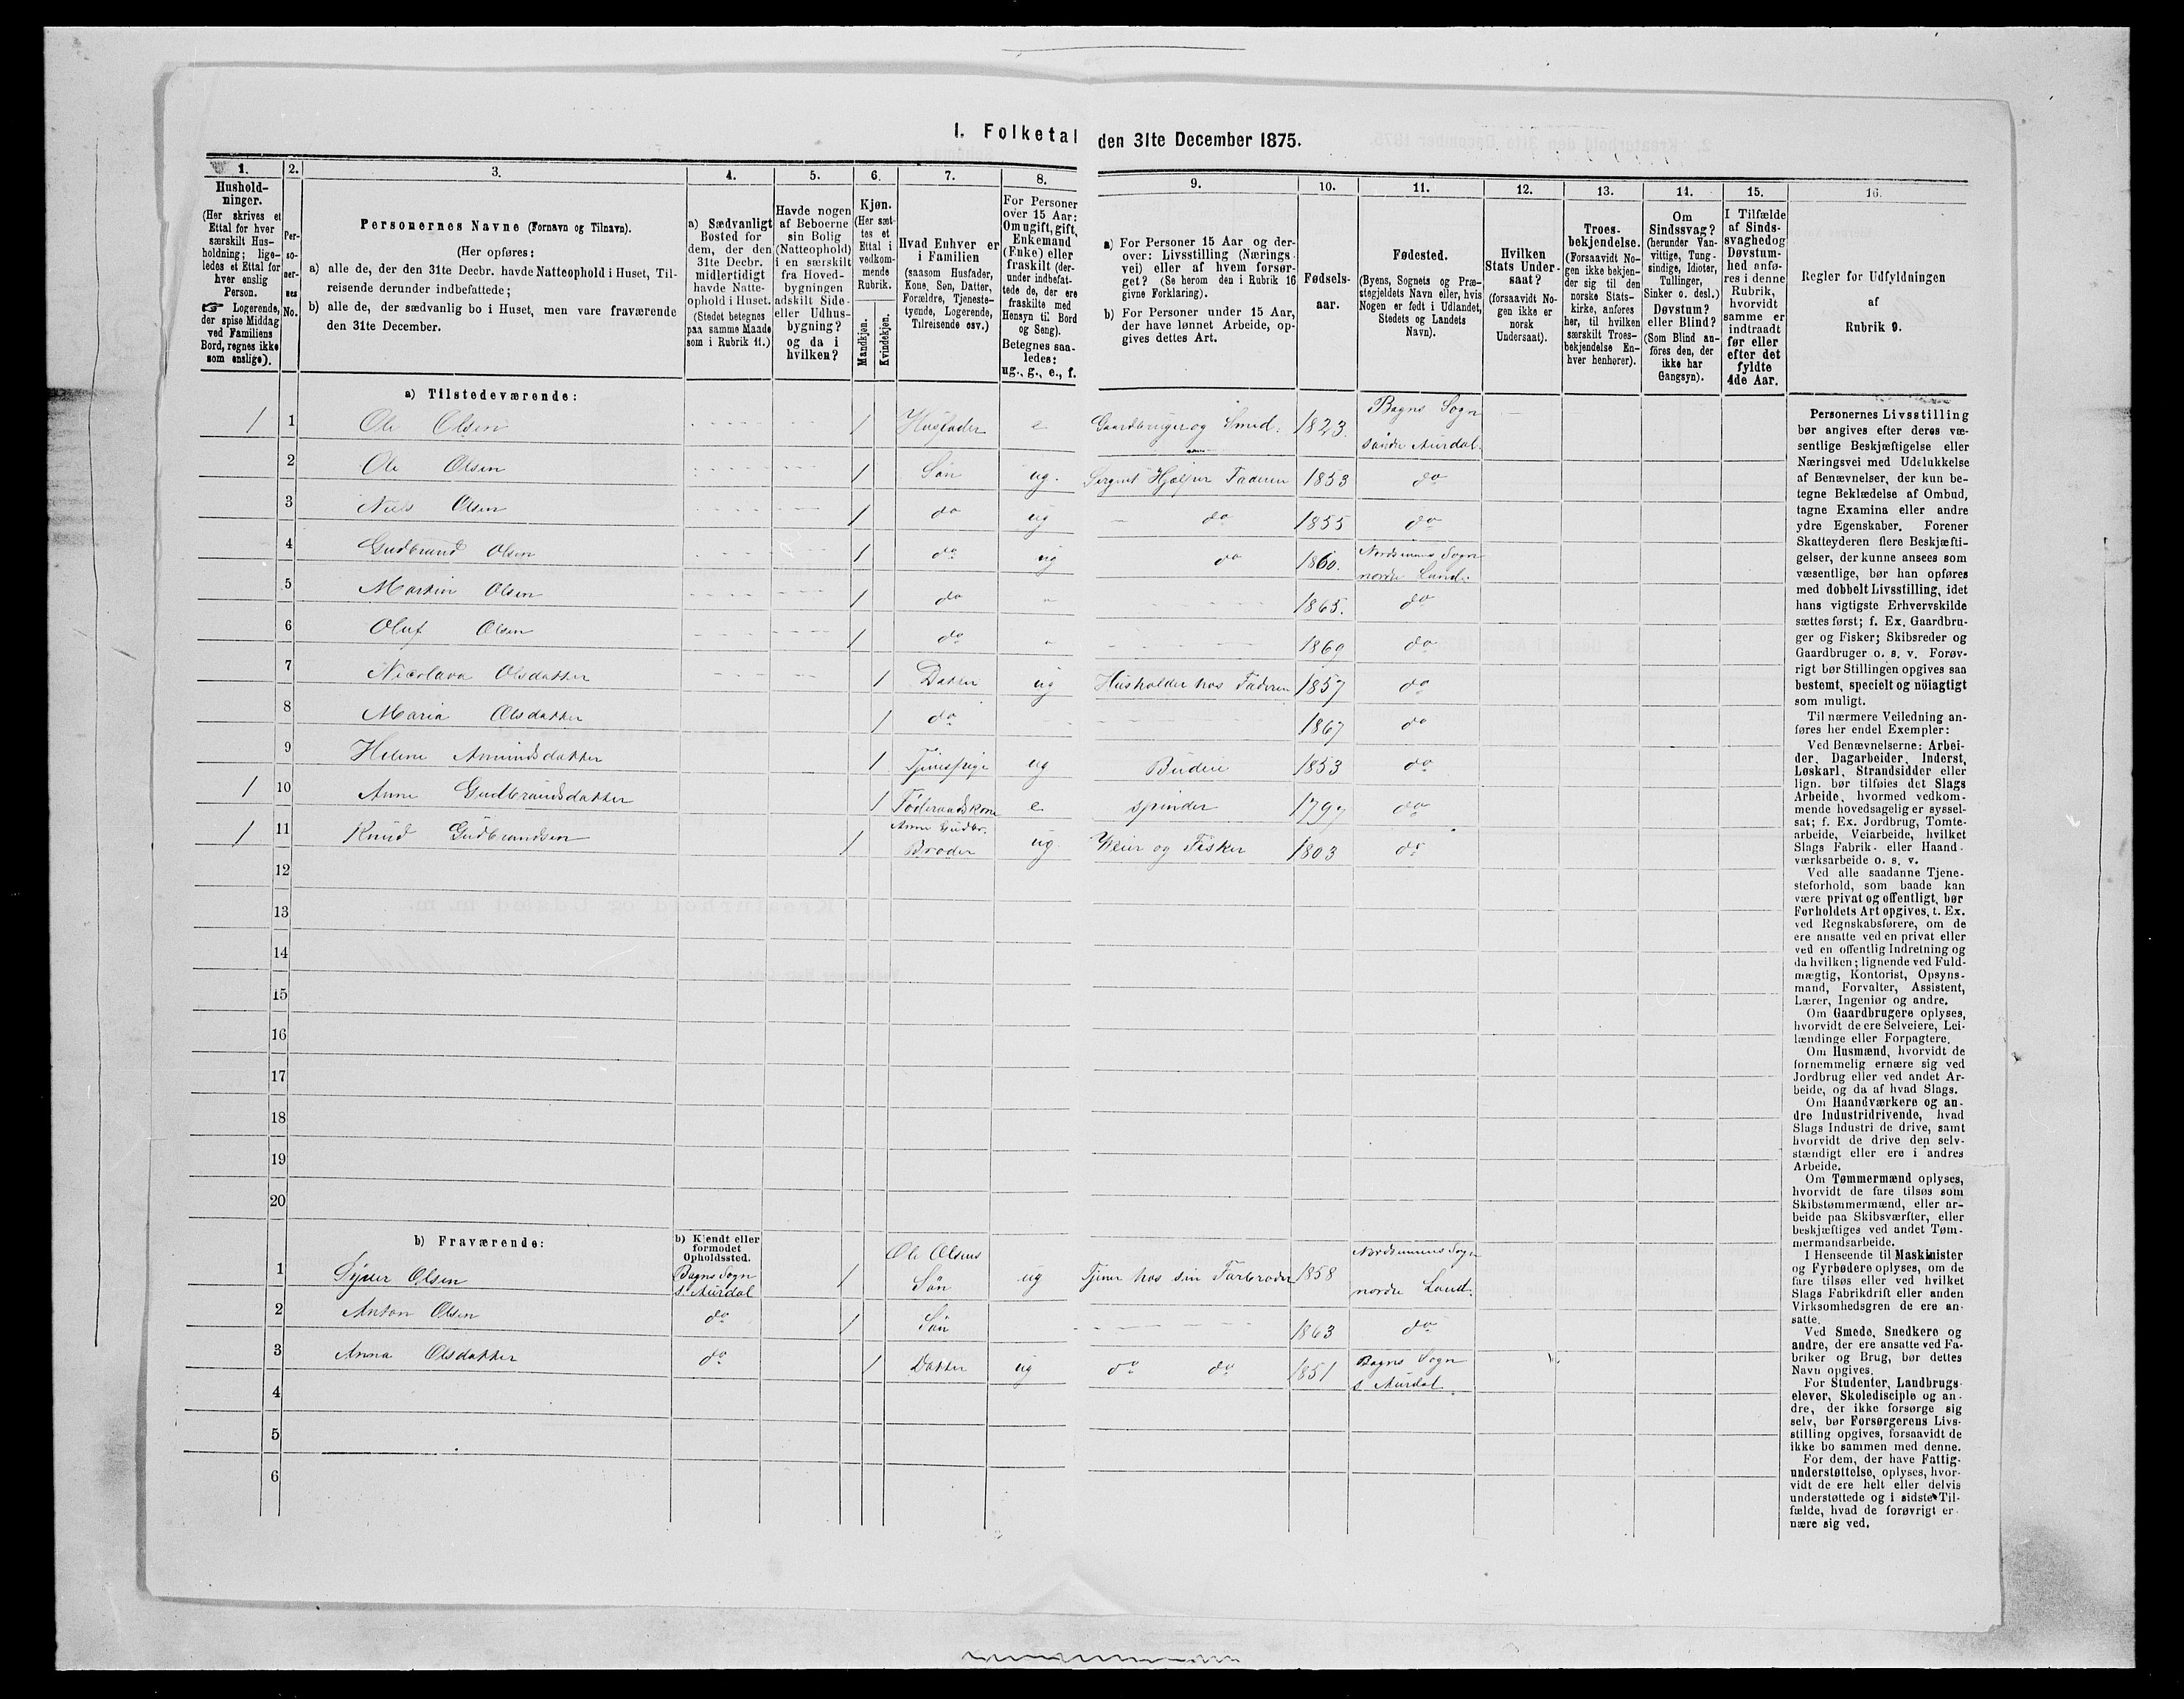 I. Folketal den 31te December 1875.
1.
Hushold-
ninger.
(Her skrives et
Ettal for hver
særskilt Hus-
holdning; lige-
ledes et Ettal for
hver enslig
Person.
☞ Logerende,
der spise Middag
ved Familiens
Bord, regnes ikke
som enslige).
2.
Per-
so-
ner-
nes
No.
3.
Personernes Navne (Fornavn og Tilnavn).
(Her opføres:
a) alle de, der den 31te Decbr. havde Natteophold i Huset, Til-
reisende derunder indbefattede;
b) alle de, der sædvanlig bo i Huset, men vare fraværende
den 31te December.
4.
a) Sædvanligt
Bosted for
dem, der den
31te Decbr.
midlertidigt
havde Natte-
ophold i Huset.
(Stedet betegnes
paa samme Maade
som i Rubrik 11.)
5.
Havde nogen
af Beboerne
sin Bolig
(Natteophold)
i en særskilt
fra Hoved-
bygningen
adskilt Side-
eller Udhus-
bygning?
og da i
hvilken?
6.
Kjøn.
(Her sæt-
tes et
Ettal i
vedkom-
mende
Rubrik.
Mandkjøn.
Kvindekjøn.
7.
Hvad Enhver er
i Familien
(saasom Husfader,
Kone, Søn, Datter,
Forældre, Tjeneste-
tyende, Logerende,
Tilreisende osv.)
8.
For Personer
over 15 Aar:
Om ugift, gift,
Enkemand
(Enke) eller
fraskilt (der-
under indbefat-
tede de, der ere
fraskilte med
Hensyn til Bord
og Seng).
Betegnes saa-
ledes:
ug., g., e., f.
9.
a) For Personer 15 Aar og der-
over: Livsstilling (Nærings-
vei) eller af hvem forsør-
get? (Se herom den i Rubrik 16
givne Forklaring).
b) For Personer under 15 Aar,
der have lønnet Arbeide, op-
gives dettes Art.
10.
Fødsels-
aar.
11.
Fødested.
(Byens, Sognets og Præ-
stegjeldets Navn eller, hvis
Nogen er født i Udlandet,
Stedets og Landets
Navn).
12.
Hvilken
Stats Under-
saat?
(forsaavidt No-
gen ikke er
norsk
Undersaat).
13.
Troes-
bekjendelse.
(Forsaavidt No-
gen ikke bekjen-
der sig til den
norske Stats-
kirke, anføres
her, til hvilken
særskilt Troes-
bekjendelse En-
hver henhører).
14.
Om
Sindssvag?
(herunder Van-
vittige, Tung-
sindige, Idioter,
Tullinger,
Sinker o. desl.)
Døvstum?
eller Blind?
(Som Blind an-
føres den, der
ikke har
Gangsyn).
15.
I Tilfælde
af Sinds-
svaghed og
Døvstum-
hed anfø-
res i denne
Rubrik,
hvorvidt
samme er
indtraadt
før eller
efter det
fyldte
4de Aar.
16.
Regler for Udfyldningen
af
Rubrik 9.
a) Tilstedeværende:
1 1 Ole Olsen 1 Husfader e Gaardbruger og Smed. 1823. Bagns Sogn
søndre Aurdal.
2 Ole Olsen 1 Søn ug. Sergent Hjælper Faderen 1853 do
3 Niels Olsen 1 do ug do 1855 do
4 Gudbrand Olsen 1 do ug do 1860. Nordsinnes Sogn
nordre Land.
5 Martin Olsen 1 do 1865. do
6 Oluf Olsen 1 do 1869 do
7 Nicolava Olsdatter 1 Datter ug Husholder hos Faderen 1857 do
8 Maria Olsdatter 1 do 1867 do
9 Helene Amundsdatter 1 Tjenespige ug Budeie 1853 do
1 10 Anne Gudbrandsdatter 1 Føderaadskone e spinder 1797 do
1 11 Knud Gudbrandsen 1 Anne Gudbr.
Broder ug Væver og Fisker 1803 do
12
13
14
15
16
17
18
19
20
b) Fraværende:
b) Kjendt eller
formodet
Opholdssted.
1 Syver Olsen Bagns Sogn
s Aurdal 1 Ole Olsens
Søn ug Tjener hos sin Farbroder 1858 Nordsinnens Sogn
nordre Land.
2 Anton Olsen do 1 Søn 1863 do
3 Anna Olsdatter do 1 Datter ug do do 1851 Bagns Sogn
s Aurdal
4
5
6
Personernes Livsstilling
bør angives efter deres væ-
sentlige Beskjæftigelse eller
Næringsvei med Udelukkelse
af Benævnelser, der kun be-
tegne Beklædelse af Ombud,
tagne Examina eller andre
ydre Egenskaber. Forener
Skatteyderen flere Beskjæfti-
gelser, der kunne ansees som
væsentlige, bør han opføres
med dobbelt Livsstilling, idet
hans vigtigste Erhvervskilde
sættes først; f. Ex. Gaardbru-
ger og Fisker; Skibsreder og
Gaardbruger o. s. v. Forøv-
rigt bør Stillingen opgives saa
bestemt, specielt og nøiagtigt
som muligt.
Til nærmere Veiledning an-
føres her endel Exempler:
Ved Benævnelserne: Arbei-
der, Dagarbeider, Inderst,
Løskarl, Strandsidder eller
lign. bør tilføies det Slags
Arbeide, hvormed vedkom-
mende hovedsagelig er syssel-
sat; f. Ex. Jordbrug, Tomte-
arbeide, Veiarbeide, hvilket
Slags Fabrik- eller Haand-
værksarbeide o. s. v.
Ved alle saadanne Tjene-
steforhold, som baade kan
være privat og offentligt, bør
Forholdets Art opgives, t. Ex.
ved Regnskabsførere, om de
ere ansatte ved en privat eller
ved en offentlig Indretning og
da hvilken; lignende ved Fuld-
mægtig, Kontorist, Opsyns-
mand, Forvalter, Assistent,
Lærer, Ingeniør og andre.
Om Gaardbrugere oplyses,
hvorvidt de ere Selveiere, Lei-
lændinge eller Forpagtere.
Om Husmænd, hvorvidt de
fornemmelig ernære sig ved
Jordbrug eller ved andet Ar-
beide, og da af hvad Slags.
Om Haandværkere og an-
dre Industridrivende, hvad
Slags Industri de drive, samt
hvorvidt de drive den selv-
stændigt eller ere i andres
Arbeide.
Om Tømmermænd oplyses,
hvorvidt de fare tilsøs som
Skibstømmermænd, eller ar-
beide paa Skibsværfter, eller
beskjæftiges ved andet Tøm-
mermandsarbeide.
I Henseende til Maskinister
og Fyrbødere oplyses, om de
fare tilsøs eller ved hvilket
Slags Fabrikdrift eller anden
Virksomhedsgren de ere an-
satte.
Ved Smede, Snedkere og
andre, der ere ansatte ved Fa-
briker og Brug, bør dettes
Navn opgives.
For Studenter, Landbrugs-
elever, Skoledisciple og an-
dre, der ikke forsørge sig
selv, bør Forsørgerens Livs-
stilling opgives, forsaavidt de
ikke bo sammen med denne.
For dem, der have Fattig-
understøttelse, oplyses, hvor-
vidt de ere helt eller delvis
understøttede og i sidste Til-
fælde, hvad de forøvrigt er-
nære sig ved.